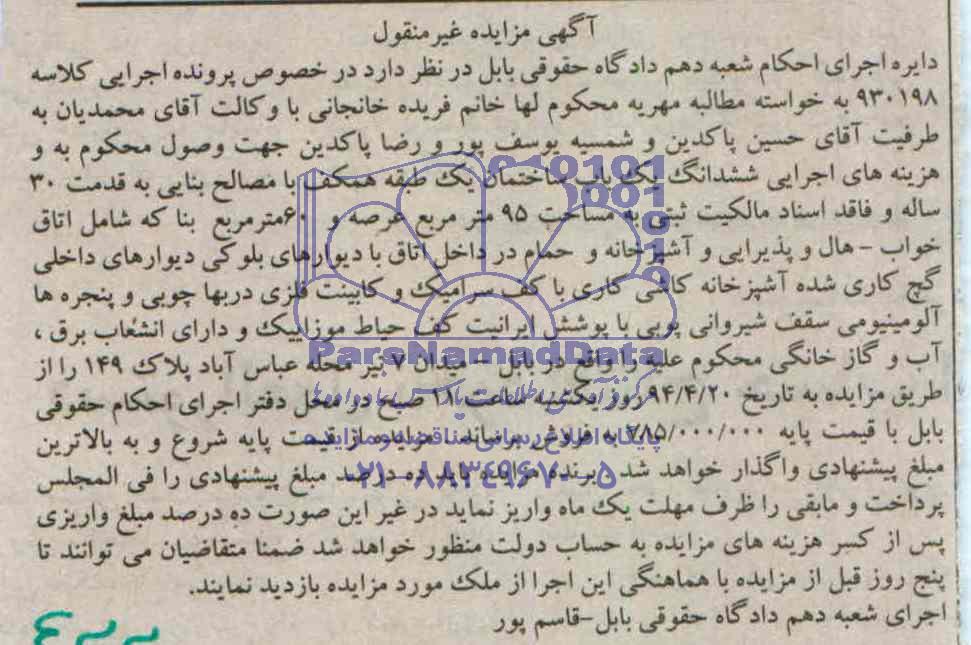 آگهی مزایده غیرمنقول
دایره اجرای احکام شعبه دهم دادگاه حقوقی بابل در نظر دارد در خصوص پرونده اجرایی کلاسه
۹۳۰۱۹۸ به خواسته مطالبه مهریه محکوم لها خانم فریده خانجانی با وکالت آقای محمدیان به
طرفیت آقای حسین پاکدین و شمسیه یوسف پور و رضا پاکدین جهت وصول محکوم به و
هزینه های اجرایی ششدانگ یک باب ساختمان یک طبقه همکف با مصالح بنایی به قدمت ۳۰
ساله و فاقد اسناد مالکیت ثبتی به مساحت ۹۵ متر مربع عرصه و ۶۰مترمربع بنا که شامل اتاق
خواب - هال و پذیرایی و آشپزخانه و حمام در داخل اتاق با دیوارهای بلوکی دیوارهای داخلی
گچ کاری شده آشپزخانه کاشی کاری با کف سرامیک و کابینت فلزی دربها چوبی و پنجره ها
آلومینیومی سقف شیروانی پوبی با پوشش ایرانیت کف حیاط موزاییک و دارای انشعاب برق ،
آب و گاز خانگی محکوم علیه را واقع در بابل - میدان ۷ تیر محله عباس آباد پلاک ۱۴۹ را از
طریق مزایده به تاریخ ۹۴/۴/۲۰ روز یکشنبه ساعت ۱۱ صبح در محل دفتر اجرای احکام حقوقی
بابل با قیمت پایه ۷۸۵/۰۰۰/۰۰۰ به فروش برساند. مزایده از قیمت پایه شروع و به بالاترین
مبلغ پیشنهادی واگذار خواهد شد. برنده مزایده باید ده درصد مبلغ پیشنهادی را فی المجلس
پرداخت و مابقی را ظرف مهلت یک ماه واریز نماید در غیر این صورت ده درصد مبلغ واریزی
پس از کسر هزینه های مزایده به حساب دولت منظور خواهد شد ضمنا متقاضیان می توانند تا
پنج روز قبل از مزایده با هماهنگی این اجرا از ملک مورد مزایده بازدید نمایند.
اجرای شعبه دهم دادگاه حقوقی بابل-قاسم پور
ParsNamadData
پایگاه اطلاع رسانی مناقصه و مزایده
۰۲۱-۸۸۳۴۹۶۷۰-۵